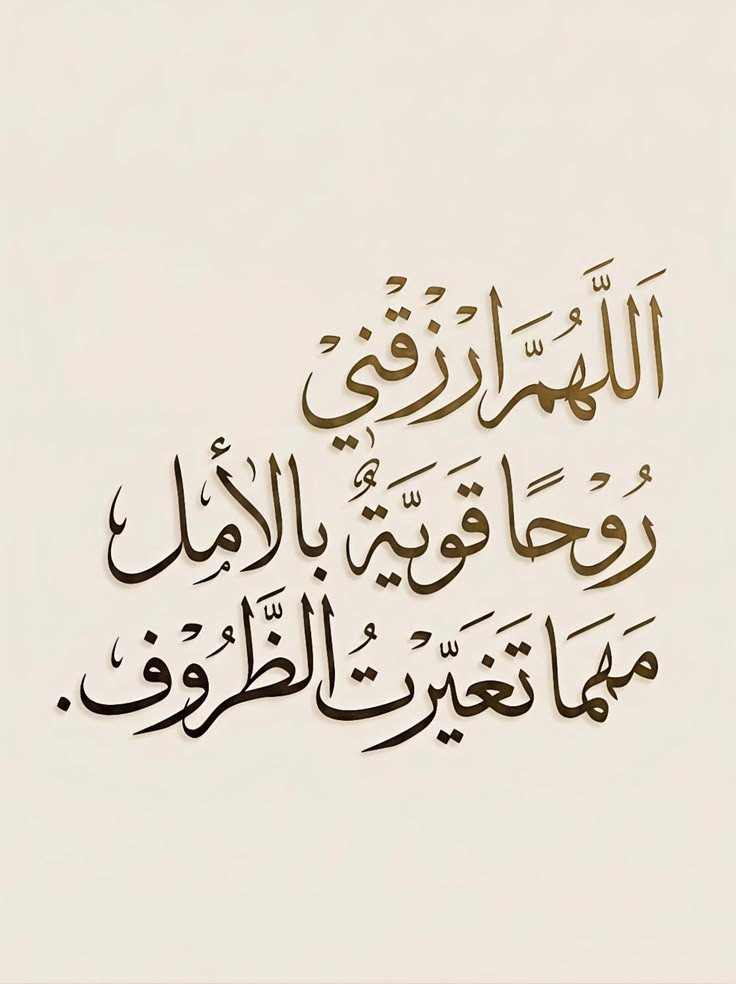 اَللَّهُمَّ ارْزُقْنِيْ
رُوْحًا قَوِيَّةٌ بالأمل
مَهَمَا تَغَيَّرْتُ الظَّرُوْف.